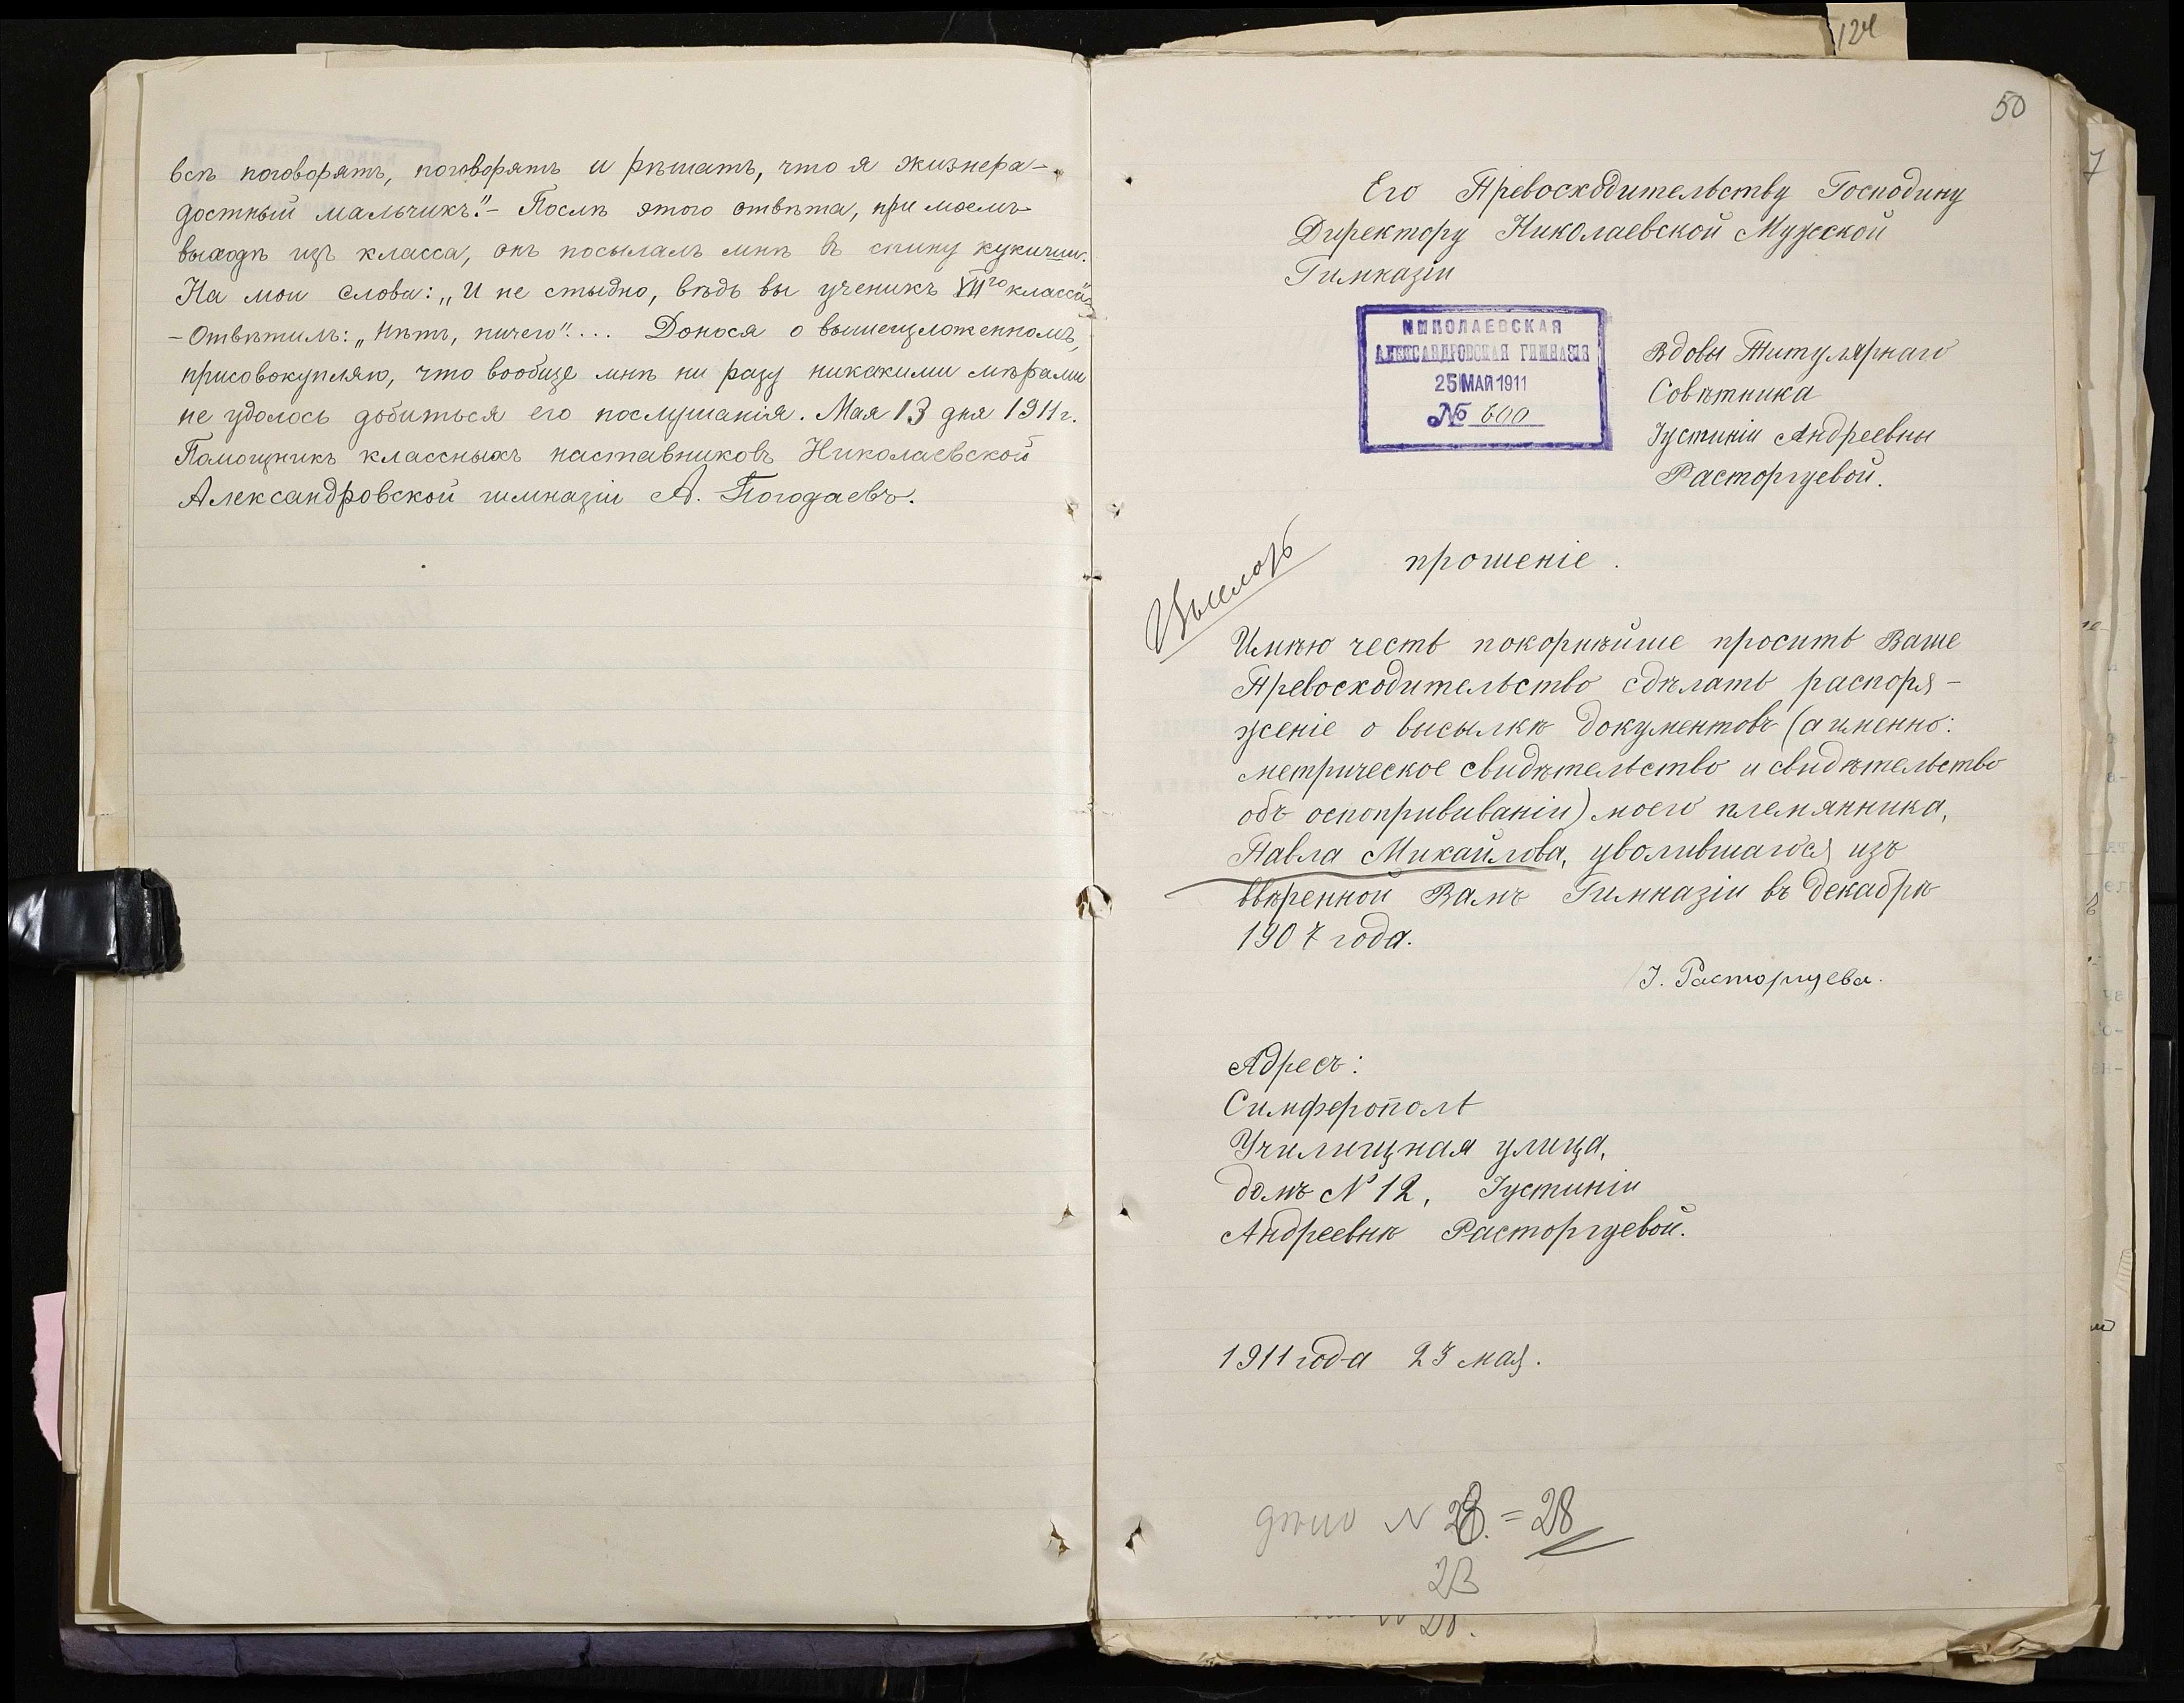 всѣ поговорятъ, поговорятъ и рѣшатъ, что я жизнера-
достный мальчикъ." – Послѣ этого отвѣта, при моемъ
выходѣ изъ класса, онъ посылалъ мнѣ въ спину кукиши.
На мои слова: „И не стыдно, вѣдь вы ученикъ VIIго класса"
– Отвѣтилъ: „Нѣтъ, ничего"... Донося о вышеизложенномъ,
присовокупляю, что вообще мнѣ ни разу никакими мѣрами
не удолось добиться его послушанія. Мая 13 дня 1911 г.
Помощникъ классныхъ наставниковъ Николаевской
Александровской гимназіи А. Погодаевъ.
124
50
7
Его Превосходительству Господину
Директору Николаевской Мужской
Гимназіи
НИКОЛАЕВСКАЯ
АЛЕКСАНДРОВСКАЯ ГИМНАЗІЯ
25 МАЯ 1911
№ 600
Вдовы Титулярнаго
Совѣтника
Іустиніи Андреевны
Расторгуевой.
прошеніе.
Имѣю честь покорнѣйше просить Ваше
Превосходительство сдѣлать распоря-
женіе о высылкѣ документовъ (а именно:
метрическое свидѣтельство и свидѣтельство
объ оспопрививаніи) моего племянника,
Павла Михайлова, уволившагося изъ
ввѣренной Вамъ Гимназіи въ декабрѣ
1907 года.
І. Расторгуева.
Адресъ:
Симферополь
Училищная улица,
домъ № 12, Іустиніи
Андреевнѣ Расторгуевой.
1911 года 23 мая.
дѣло N 28. = 28
23